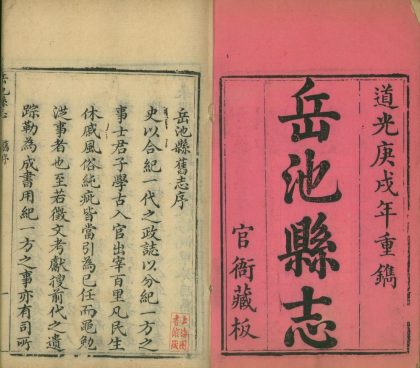 道光庚戌年重鐫
岳池縣志
官衙藏板
岳池縣舊志序
史以合紀一代之政誌以分紀一方之
事士君子學古入官出宰百里凡民生
休戚風俗純疵皆當引為已任而黽勉
從事者也至若徵文考獻搜前代之遺
踪勒為成書用紀一方之事亦有司所
岳池縣志